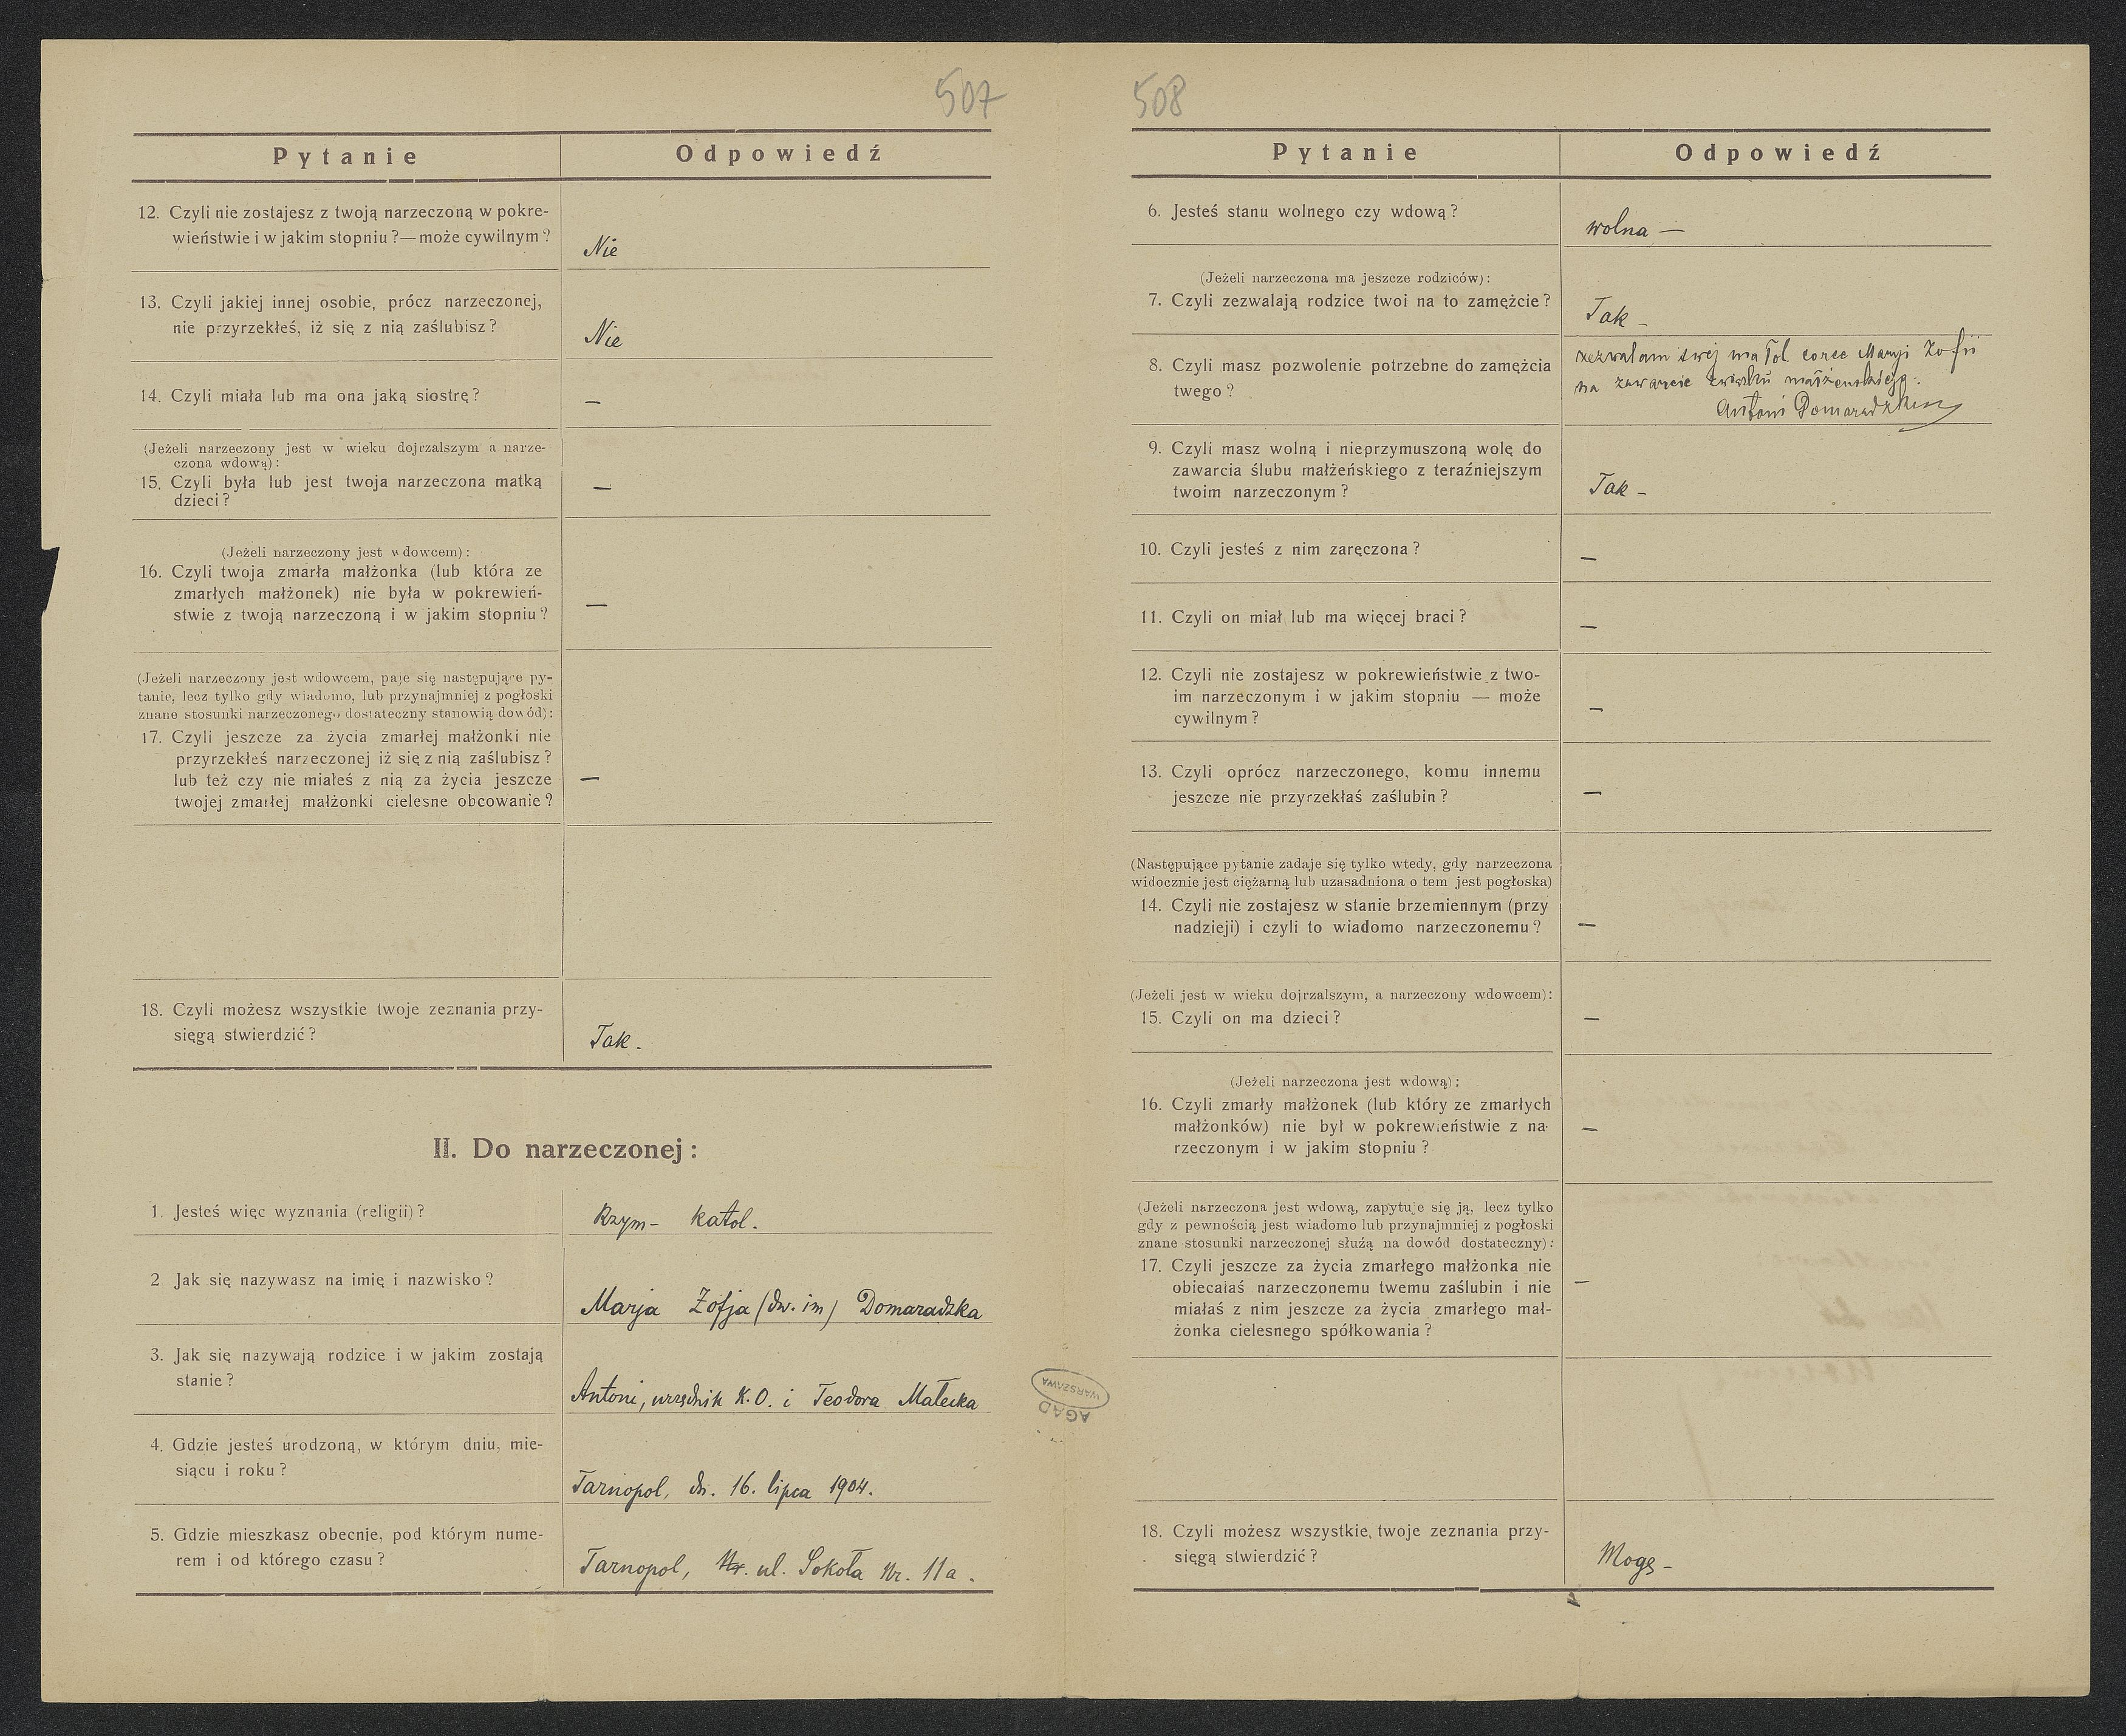 507
Pytanie
Odpowiedź
12. Czyli nie zostajesz z twoją narzeczoną w pokre-
wieństwie i w jakim stopniu?—może cywilnym?
Nie
13. Czyli jakiej innej osobie, prócz narzeczonej,
nie przyrzekłeś, iż się z nią zaślubisz?
Nie
14. Czyli miała lub ma ona jaką siostrę?
—
(Jeżeli narzeczony jest w wieku dojrzalszym a narze-
czona wdową):
15. Czyli była lub jest twoja narzeczona matką
dzieci?
—
(Jeżeli narzeczony jest wdowcem):
16. Czyli twoja zmarła małżonka (lub która ze
zmarłych małżonek) nie była w pokrewień-
stwie z twoją narzeczoną i w jakim stopniu?
—
(Jeżeli narzeczony jest wdowcem, paje się następujące py-
tanie, lecz tylko gdy wiadomo, lub przynajmniej z pogłoski
znane stosunki narzeczonego dostateczny stanowią dowód):
17. Czyli jeszcze za życia zmarłej małżonki nie
przyrzekłeś narzeczonej iż się z nią zaślubisz?
lub też czy nie miałeś z nią za życia jeszcze
twojej zmarłej małżonki cielesne obcowanie?
—
18. Czyli możesz wszystkie twoje zeznania przy-
sięgą stwierdzić?
Tak.
II. Do narzeczonej:
1. Jesteś więc wyznania (religii)?
Rzym- katol.
2 Jak się nazywasz na imię i nazwisko?
Marja Zofja (dw. im) Domaradzka
3. Jak się nazywają rodzice i w jakim zostają
stanie?
Antoni, urzędnik K.O. i Teodora Małecka
4. Gdzie jesteś urodzoną, w którym dniu, mie-
siącu i roku?
Tarnopol, dn. 16. lipca 1904.
5. Gdzie mieszkasz obecnie, pod którym nume-
rem i od którego czasu?
Tarnopol, Nr. ul. Sokoła Nr. 11a.
AGAD
WARSZAWA
508
Pytanie
Odpowiedź
6. Jesteś stanu wolnego czy wdową?
wolna —
(Jeżeli narzeczona ma jeszcze rodziców):
7. Czyli zezwalają rodzice twoi na to zamężcie?
Tak -
8. Czyli masz pozwolenie potrzebne do zamężcia
twego?
zezwalam swej małol. corce Maryi Zofii
na zawarcie związku małżeńskiego.
Antoni Domaradzki
9. Czyli masz wolną i nieprzymuszoną wolę do
zawarcia ślubu małżeńskiego z teraźniejszym
twoim narzeczonym?
Tak -
10. Czyli jesteś z nim zaręczona?
—
11. Czyli on miał lub ma więcej braci?
—
12. Czyli nie zostajesz w pokrewieństwie z two-
im narzeczonym i w jakim stopniu — może
cywilnym?
—
13. Czyli oprócz narzeczonego, komu innemu
jeszcze nie przyrzekłaś zaślubin?
—
(Następujące pytanie zadaje się tylko wtedy, gdy narzeczona
widocznie jest ciężarną lub uzasadniona o tem jest pogłoska)
14. Czyli nie zostajesz w stanie brzemiennym (przy
nadzieji) i czyli to wiadomo narzeczonemu?
—
(Jeżeli jest w wieku dojrzalszym, a narzeczony wdowcem):
15. Czyli on ma dzieci?
—
(Jeżeli narzeczona jest wdową):
16. Czyli zmarły małżonek (lub który ze zmarłych
małżonków) nie był w pokrewieństwie z na-
rzeczonym i w jakim stopniu?
—
(Jeżeli narzeczona jest wdową, zapytuje się ją, lecz tylko
gdy z pewnością jest wiadomo lub przynajmniej z pogłoski
znane stosunki narzeczonej służą na dowód dostateczny):
17. Czyli jeszcze za życia zmarłego małżonka nie
obiecałaś narzeczonemu twemu zaślubin i nie
miałaś z nim jeszcze za życia zmarłego mał-
żonka cielesnego spółkowania?
—
18. Czyli możesz wszystkie, twoje zeznania przy-
sięgą stwierdzić?
Mogę -